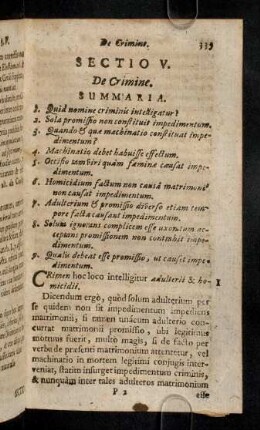 De Crimine. 335
SECTIO V.
De Crimine.
SUMMARIA.
1. Quid nomine criminis intelligatur?
2. Sola promissio non constituit impedimentum.
3. Quando & quæ machinatio constituat impe-
dimentum?
4. Machinatio debet habuisse effectum.
5. Occisio tam viri quàm fæminæ causat impe-
dimentum.
6. Homicidium factum non causâ matrimonii
non causat impedimentum.
7. Adulterium & promissio diverso etiam tem-
pore facta causant impedimentum.
8. Solum ignorant complicem esse uxoratum
acceptans promissionem non contrahit impe-
dimentum.
9. Qualis debeat esse promissio, ut causet impe-
dimentum.
CRimen hoc loco intelligitur adulterii & ho- 1
micidii
Dicendum ergò, quòd solum adulterium per
se quidem non sit impedimentum impediens
matrimonii, si tamen unicum adulterio concur-
rat matrimonii promissio, ubi loco legitimus
mortuus fuerit, multò magis, si de facto per
verba de præsenti matrimonium attentetur, vel
machinatio in mortem legitimi conjugis interve-
niat, statim insurget impedimentum criminis,
& nunquam inter tales adulteros matrimonium
P 2 esse